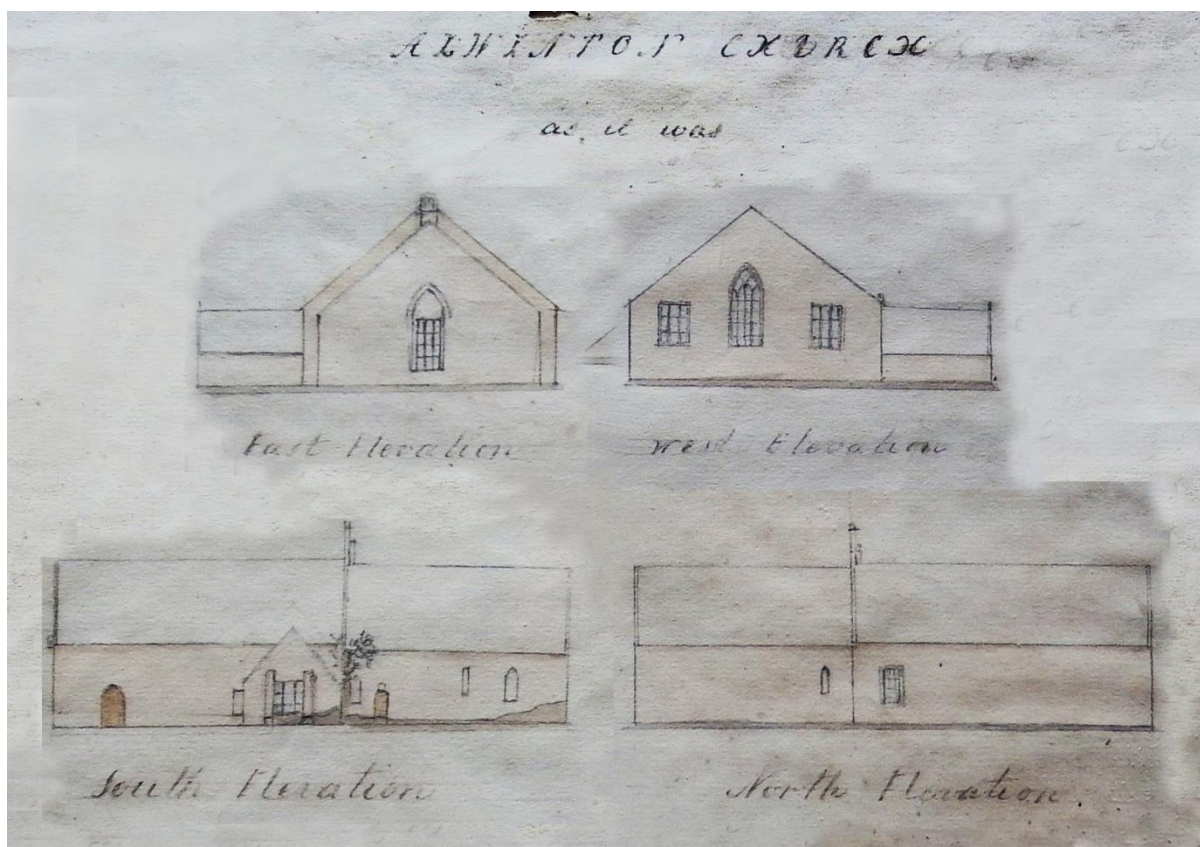 ALWINTON CHURCH
as it was
East Elevation
West Elevation
South Elevation
North Elevation.